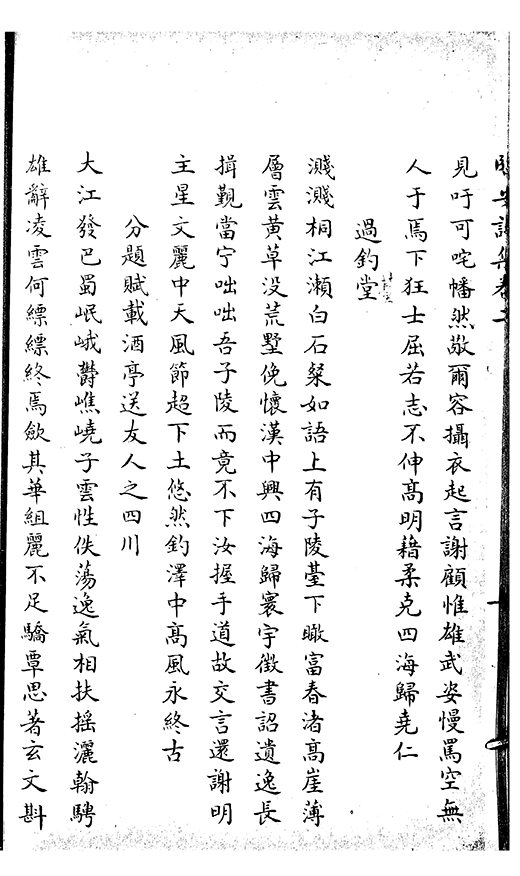 見吁可咤幡然敬爾容攝衣起言謝顧惟雄武姿慢罵空無
人于焉下狂士屈若志不伸高明藉柔克四海歸堯仁
過釣堂
濺濺桐江瀨白石粲如語上有子陵臺下瞰富春渚高崖薄
層雲黄草没荒墅俛懷漢中興四海歸寰宇徴書詔遺逸長
揖觐當宁咄咄吾子陵而竟不下汝握手道故交言還謝明
主星文麗中天風節超下土悠然釣澤中高風永終古
分題賦載酒亭送友人之四川
大江發巴蜀岷峨欝嶕嶢子雲性佚蕩逸氣相扶摇灑翰騁
雄辭凌雲何縹縹終焉斂其華組麗不足驕覃思著玄文斟